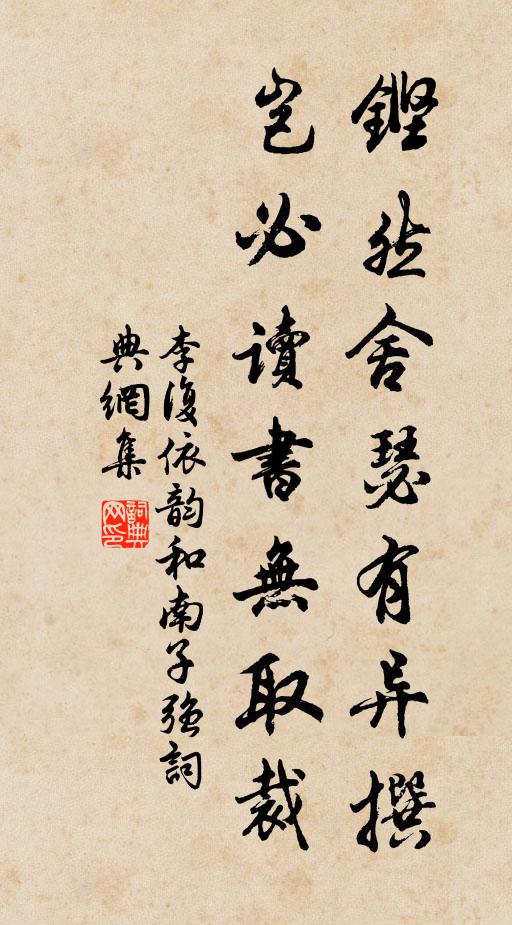 鏗然舍瑟有异撰
岂必讀書無取裁
李復依韵和南子强詞
典網集
詞典网印